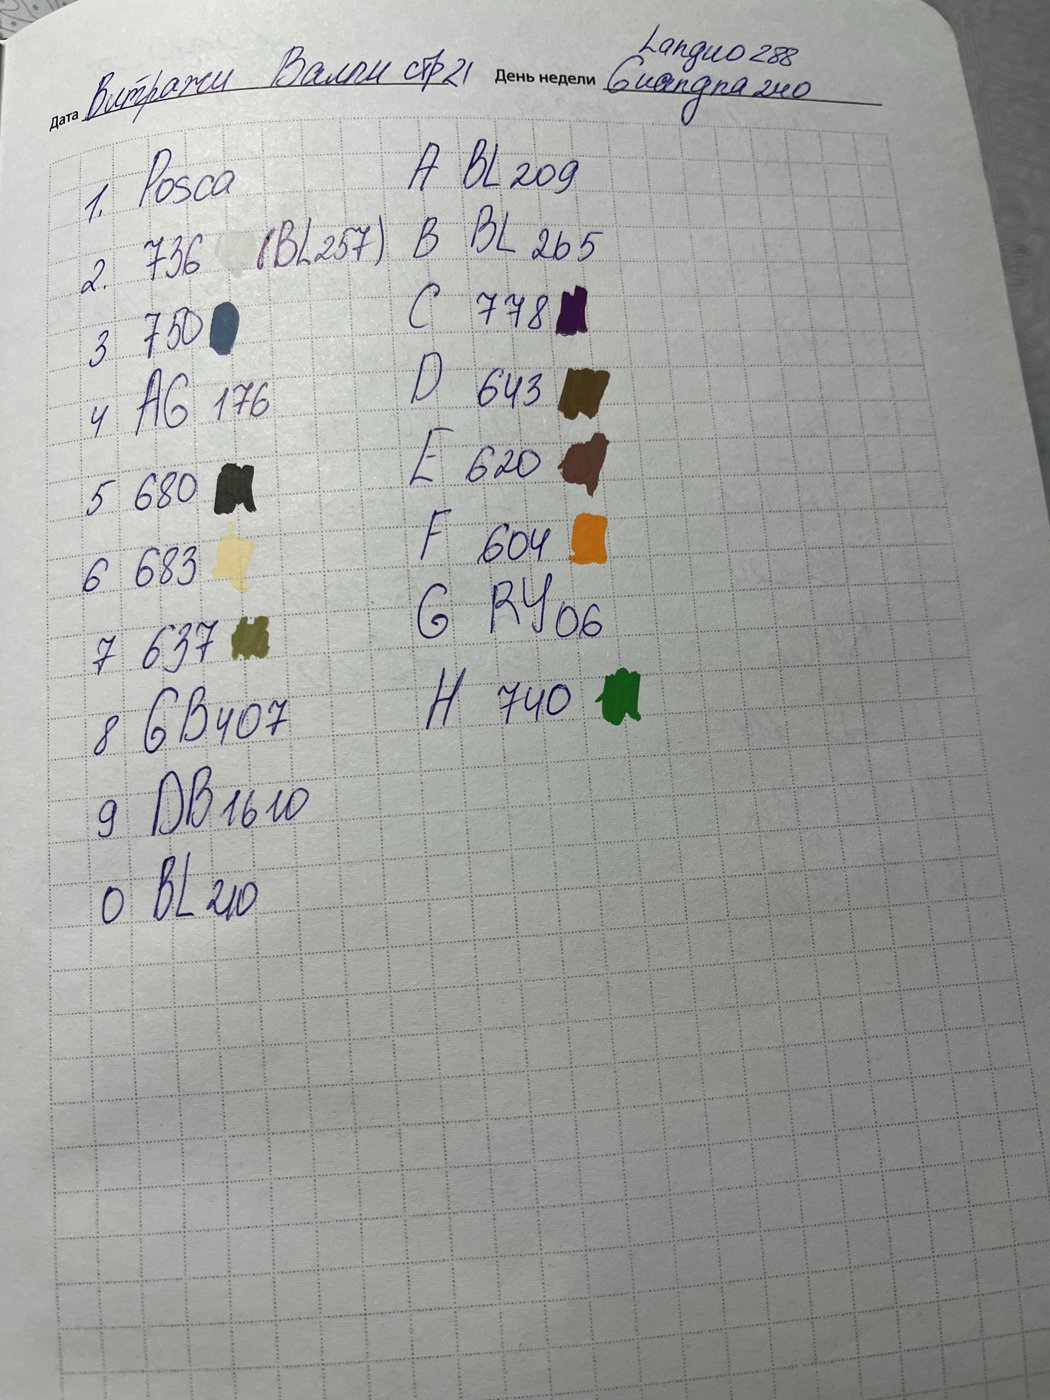 Languo 288
Дата Витражи Валли стр 21 День недели Guangna 240
1. Posca
2. 736 (BL257)
3 750
4 AG 176
5 680
6 683
7 637
8 GB407
9 DB1610
0 BL 210
A BL 209
B BL 265
C 778
D 643
E 620
F 604
G RY06
H 740